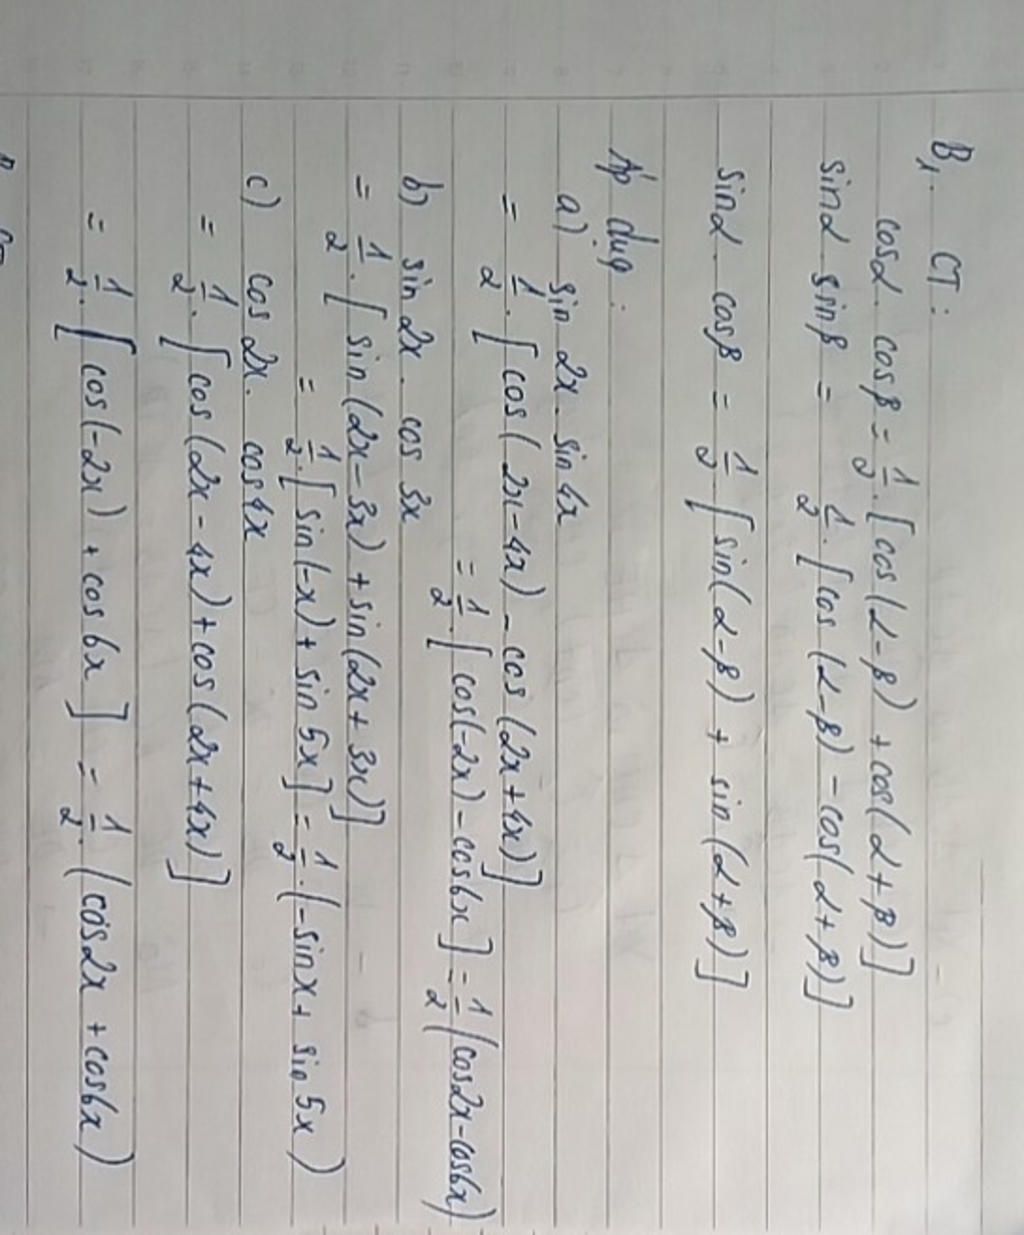 B1. CT:
cosα. cosβ = 1/2. [cos(α-β) + cos(α+β)]
sinα sinβ = 1/2. [cos (α-β) - cos(α+β)]
sinα. cosβ = 1/2 [sin(α-β) + sin(α+β)]
Áp dụng:
a) sin 2x. sin 4x
= 1/2. [cos( 2x-4x) - cos (2x+4x)]
= 1/2. [cos(-2x) - cos6x] = 1/2 (cos2x-cos6x)
b) sin 2x. cos 3x
= 1/2. [sin (2x-3x) + sin(2x+3x)]
= 1/2. [sin(-x) + sin 5x] = 1/2. (-sinx + sin 5x)
c) cos 2x. cos4x
= 1/2. [cos(2x-4x) + cos(2x+4x)]
= 1/2. [cos(-2x) + cos 6x] = 1/2. (cos2x + cos6x)